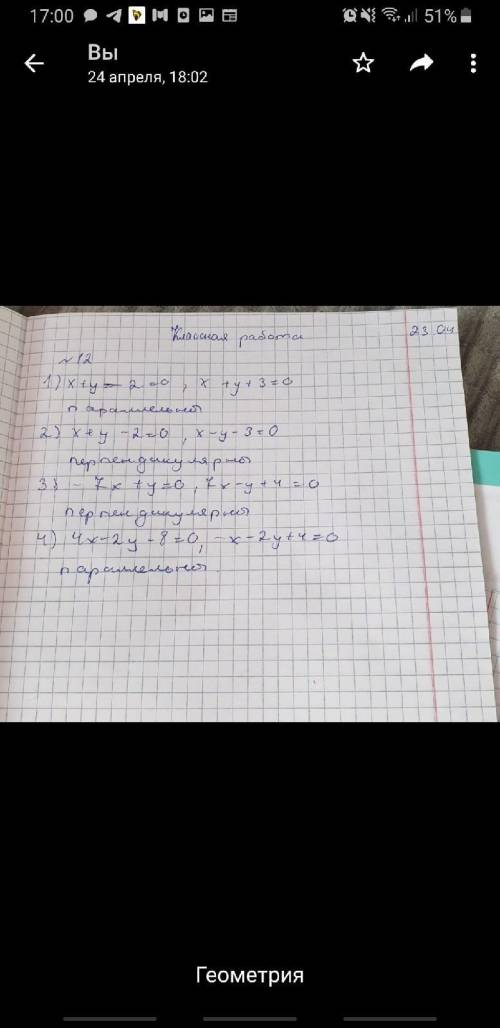 17:00 51%
Вы
24 апреля, 18:02
Классная работа 23.04
№12
1) x+y-2=0, x+y+3=0
параллельны
2) x+y-2=0, x-y-3=0
перпендикулярны
3) -7x+y=0, 7x-y+4=0
перпендикулярны
4) 4x-2y-8=0, -x-2y+4=0
параллельны
Геометрия